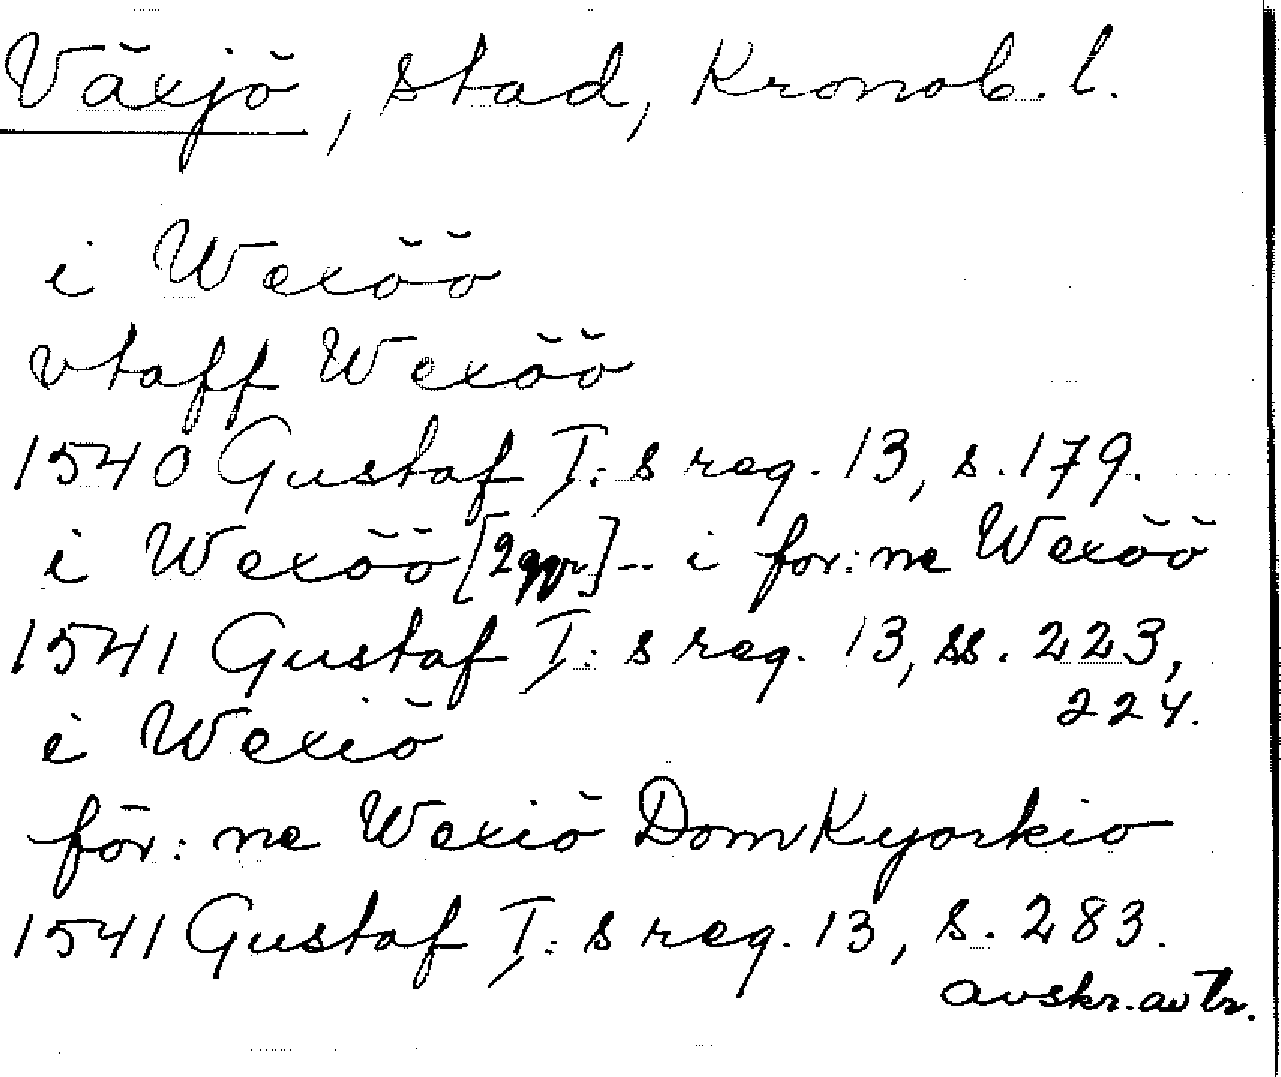 Växjö, stad, Kronob. l.
i Wexöö
vtaff Wexöö
1540 Gustaf I:s reg. 13, s. 179.
i Wexöö [2 ggr.] -- i för:ne Wexöö
1541 Gustaf I:s reg. 13, ss. 223,
224.
i Wexiö
för:ne Wexiö DomKyorkio
1541 Gustaf I:s reg. 13, s. 283.
avskr. av tr.